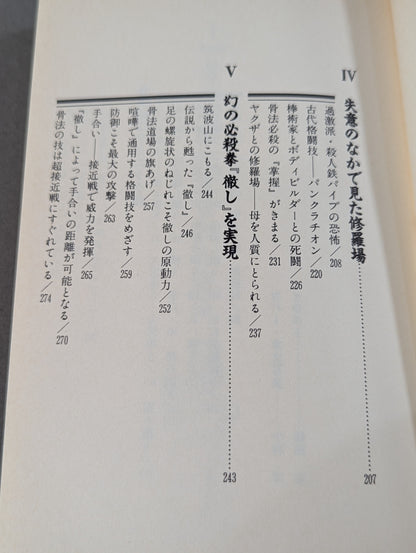 Ⅳ 失意のなかで見た修羅場……207
過激派・殺人鉄パイプの恐怖／208
古代格闘技――パンクラチオン／220
棒術家とボディビルダーとの死闘／226
骨法必殺の『掌握』がきまる／231
ヤクザとの修羅場――母を人質にとられる／237
Ⅴ 幻の必殺拳『徹し』を実現……243
筑波山にこもる／244
伝説から甦った『徹し』／246
足の螺旋状のねじれこそ徹しの原動力／252
骨法道場の旗あげ／257
喧嘩で通用する格闘技をめざす／259
防御こそ最大の攻撃／263
手合い――接近戦で威力を発揮／265
『徹し』によって手合いの距離が可能となる／270
骨法の技は超接近戦にすぐれている／274